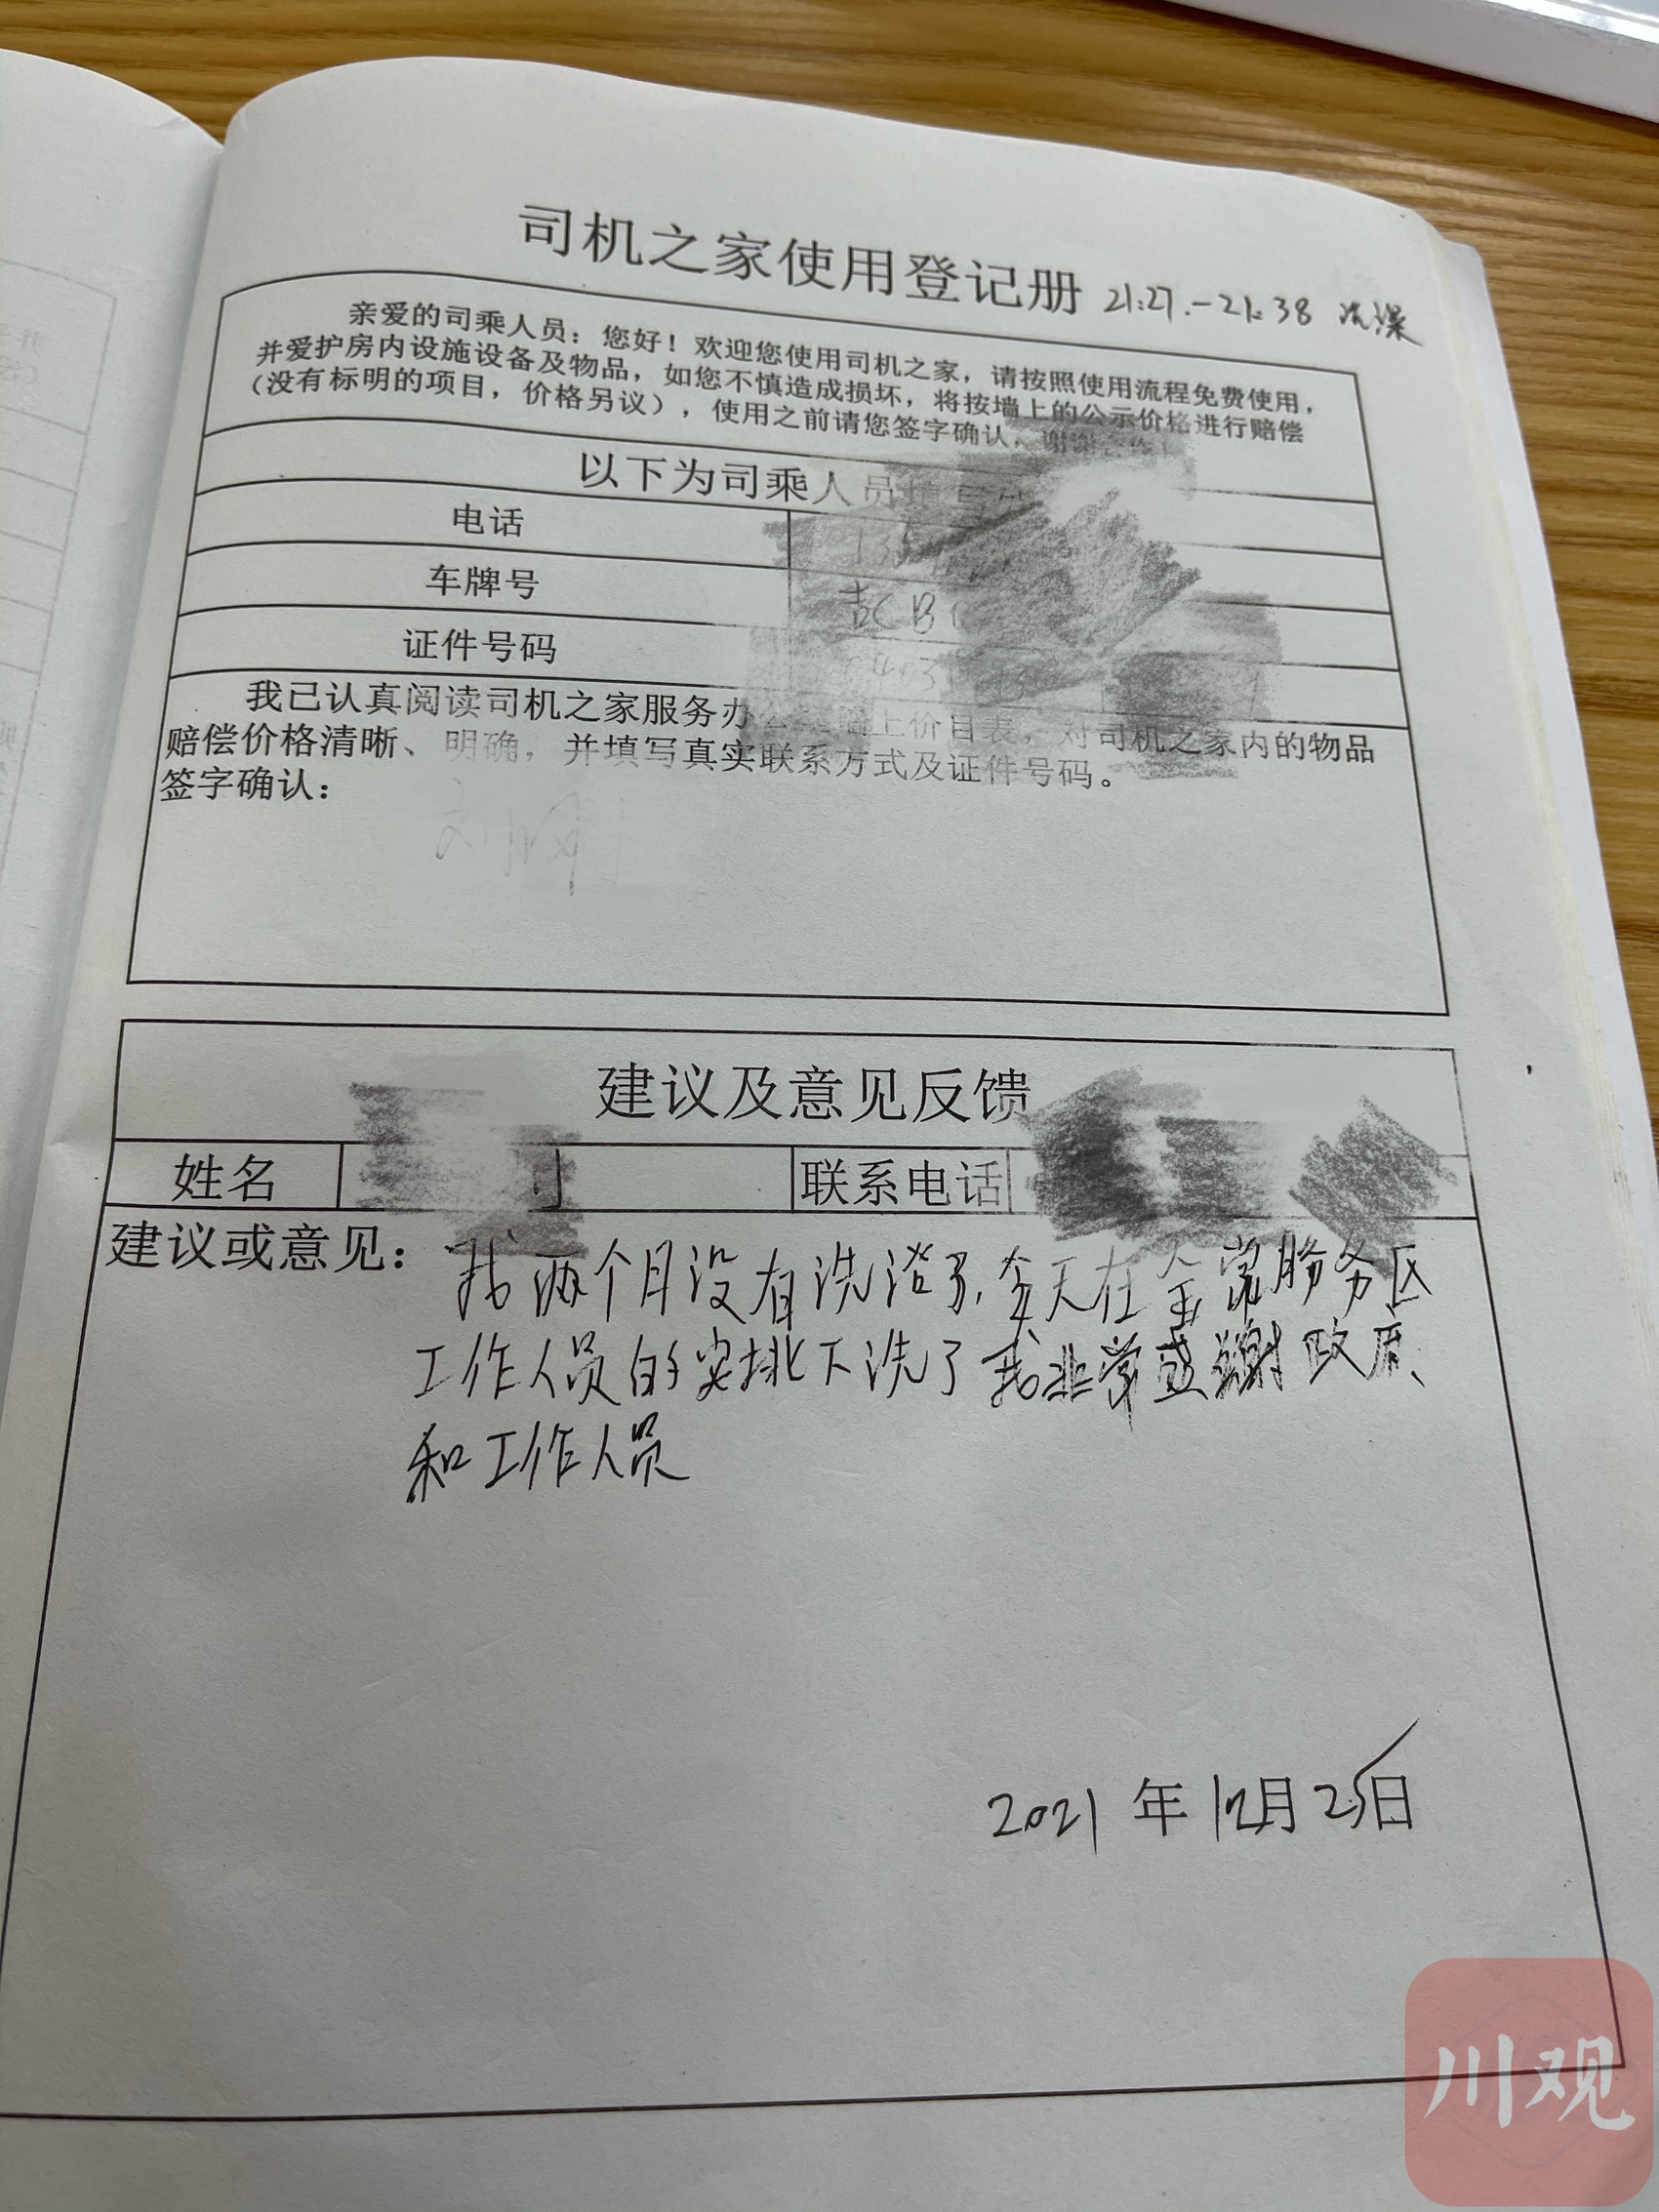 司机之家使用登记册 21:27.-21:38 洗澡
亲爱的司乘人员：您好！欢迎您使用司机之家，请按照使用流程免费使用，
并爱护房内设施设备及物品，如您不慎造成损坏，将按墙上的公示价格进行赔偿
（没有标明的项目，价格另议），使用之前请您签字确认，谢谢合作
以下为司乘人员填写
电话
车牌号
证件号码
我已认真阅读司机之家服务办 墙上价目表，对司机之家内的物品
赔偿价格清晰、明确，并填写真实联系方式及证件号码。
签字确认：
建议及意见反馈
姓名 联系电话
建议或意见：我两个月没有洗浴了,今天在金堂服务区
工作人员的安排下洗了我非常感谢政府、
和工作人员
2021年12月25日
川观